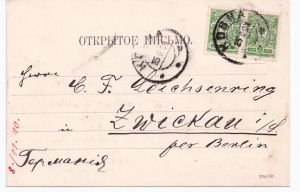 ОТКРЫТОЕ ПИСЬМО.
Herrn
C. F. Deichsenring
Zwickau i/S
per Berlin
Германія